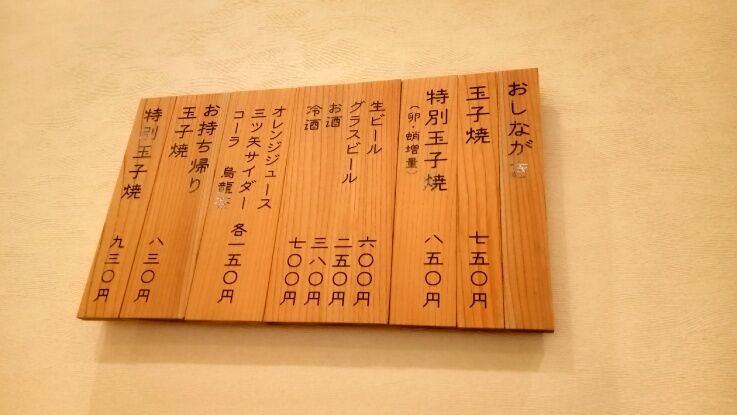 おしながき
玉子焼 七五〇円
特別玉子焼 八五〇円
(卵・蛸増量)
生ビール 六〇〇円
グラスビール 二五〇円
お酒 三八〇円
冷酒 七〇〇円
オレンジジュース
三ツ矢サイダー
コーラ 烏龍茶 各一五〇円
お持ち帰り
玉子焼 八三〇円
特別玉子焼 九三〇円